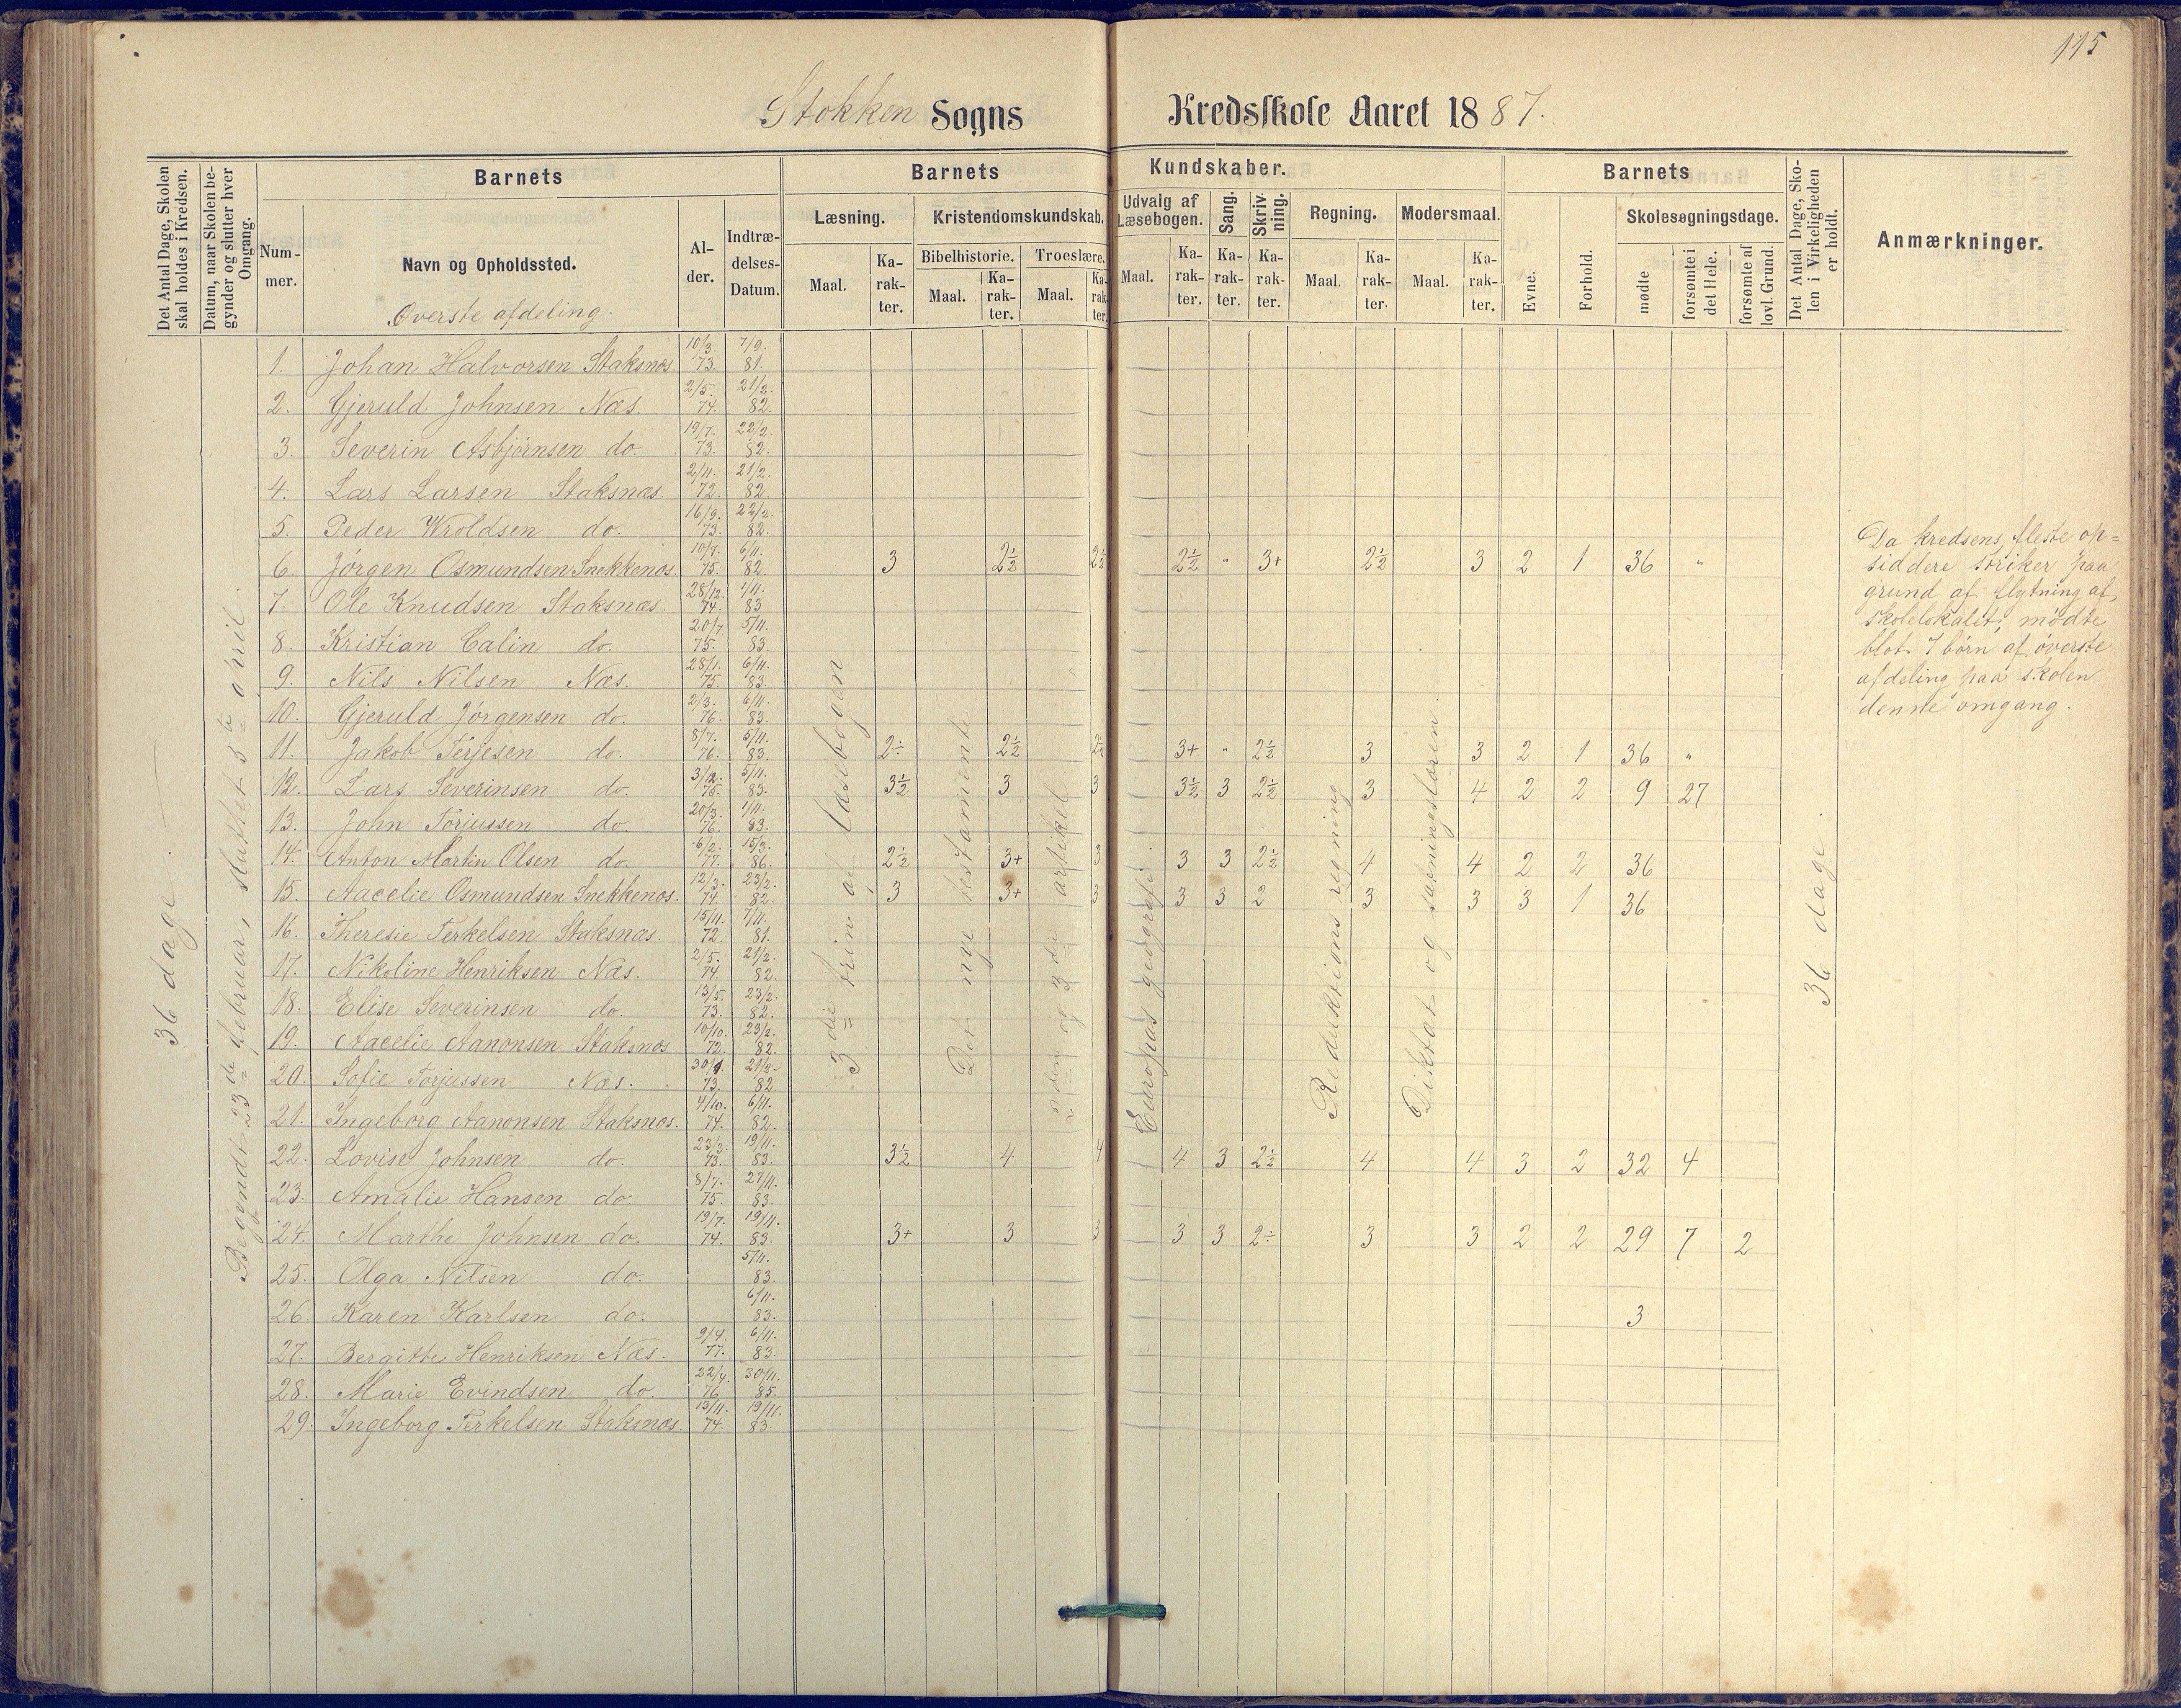 115
Stokken Sogns Kredsskole Aaret 1887.
Det Antal Dage, Skolen skal holdes i Kredsen.
Datum, naar Skolen begynder og slutter hver Omgang.
Barnets
Nummer.
Navn og Opholdssted.
Øverste afdeling.
Alder.
Indtrædelses-Datum.
Barnets Kundskaber.
Læsning.
Maal.
Karakter.
Kristendomskundskab.
Bibelhistorie.
Maal.
Karakter.
Troeslære.
Maal.
Karakter.
Udvalg af Læsebogen.
Maal.
Karakter.
Sang.
Karakter.
Skrivning.
Karakter.
Regning.
Maal.
Karakter.
Modersmaal.
Maal.
Karakter.
Barnets
Evne.
Forhold.
Skolesøgningsdage.
mødte
forsømte i det Hele.
forsømte af lovl. Grund.
Det Antal Dage, Skolen i Virkeligheden er holdt.
Anmærkninger.
36 dage.
Begyndt 23de februar, sluttet 5te april.
3die trin af læsebogen
Det nye testamente
2den og 3die artikel
Europas geografi.
Reduktions regning
Diktat og sætningslæren.
36 dage.
1. Johan Halvorsen Staksnæs. 10/3. 73. 7/9. 81.
2. Gjeruld Johnsen Næs. 2/5. 74. 21/2. 82.
3. Severin Asbjørnsen do. 19/7. 73. 22/2. 82.
4. Lars Larsen Staksnæs. 2/11. 72. 21/2. 82.
5. Peder Wroldsen do. 16/9. 73. 22/2. 82.
6. Jørgen Osmundsen Snekkenæs. 10/7. 75. 6/11. 82. 3 2½ 2½ 2½ " 3+ 2½ 3 2 1 36 "
7. Ole Knudsen Staksnæs. 28/12. 74. 1/11. 83
8. Kristian Calin do. 20/7. 75. 5/11. 83.
9. Nils Nilsen Næs. 28/1. 75. 6/11. 83.
10. Gjeruld Jørgensen do. 2/3. 76. 6/11. 83.
11. Jakob Terjesen do. 8/7. 76. 5/11. 83. 2÷ 2½ 2½ 3+ " 2½ 3 3 2 1 36 "
12. Lars Severinsen do. 3/12. 75. 5/11. 83. 3½ 3 3 3½ 3 2½ 3 4 2 2 9 27
13. John Torjussen do. 20/3. 76. 1/11. 83.
14. Anton Martin Olsen do. 6/2. 77. 15/3. 86. 2½ 3+ 3 3 3 2½ 4 4 2 2 36
15. Aacelie Osmundsen Snekkenæs. 12/3. 74. 23/2. 82. 3 3+ 3 3 3 2 3 3 3 1 36
16. Theresie Terkelsen Staksnæs. 15/11. 72. 7/11. 81.
17. Nikoline Henriksen Næs. 2/5. 74. 21/2. 82.
18. Elise Severinsen do. 13/5. 73. 23/2. 82.
19. Aacelie Aanonsen Staksnæs 10/10. 72. 23/2. 82.
20. Sofie Torjussen Næs. 73. 21/2. 82.
21. Ingeborg Aanonsen Staksnæs. 4/10. 74. 6/11. 82.
22. Lovise Johnsen do. 23/3. 73. 19/11. 83. 3½ 4 4 4 3 2½ 4 4 3 2 32 4
23. Amalie Hansen do. 8/7. 75. 27/11. 83.
24. Marthe Johnsen do. 19/7. 74. 19/11. 83. 3+ 3 3 3 3 2÷ 3 3 2 2 29 7 2
25. Olga Nilsen do. 5/11. 83.
26. Karen Karlsen do. 6/11. 83. 3
27. Bergitte Henriksen Næs. 9/4. 77. 6/11. 83.
28. Marie Evindsen do. 22/4. 76 30/11. 85.
29. Ingeborg Terkelsen Staksnæs. 13/11. 74. 19/11. 83.
Da kredsens fleste op=
siddere striker paa
grund af flytning af
skolelokalet, mødte
blot 7 børn af øverste
afdeling paa skolen
denne omgang.